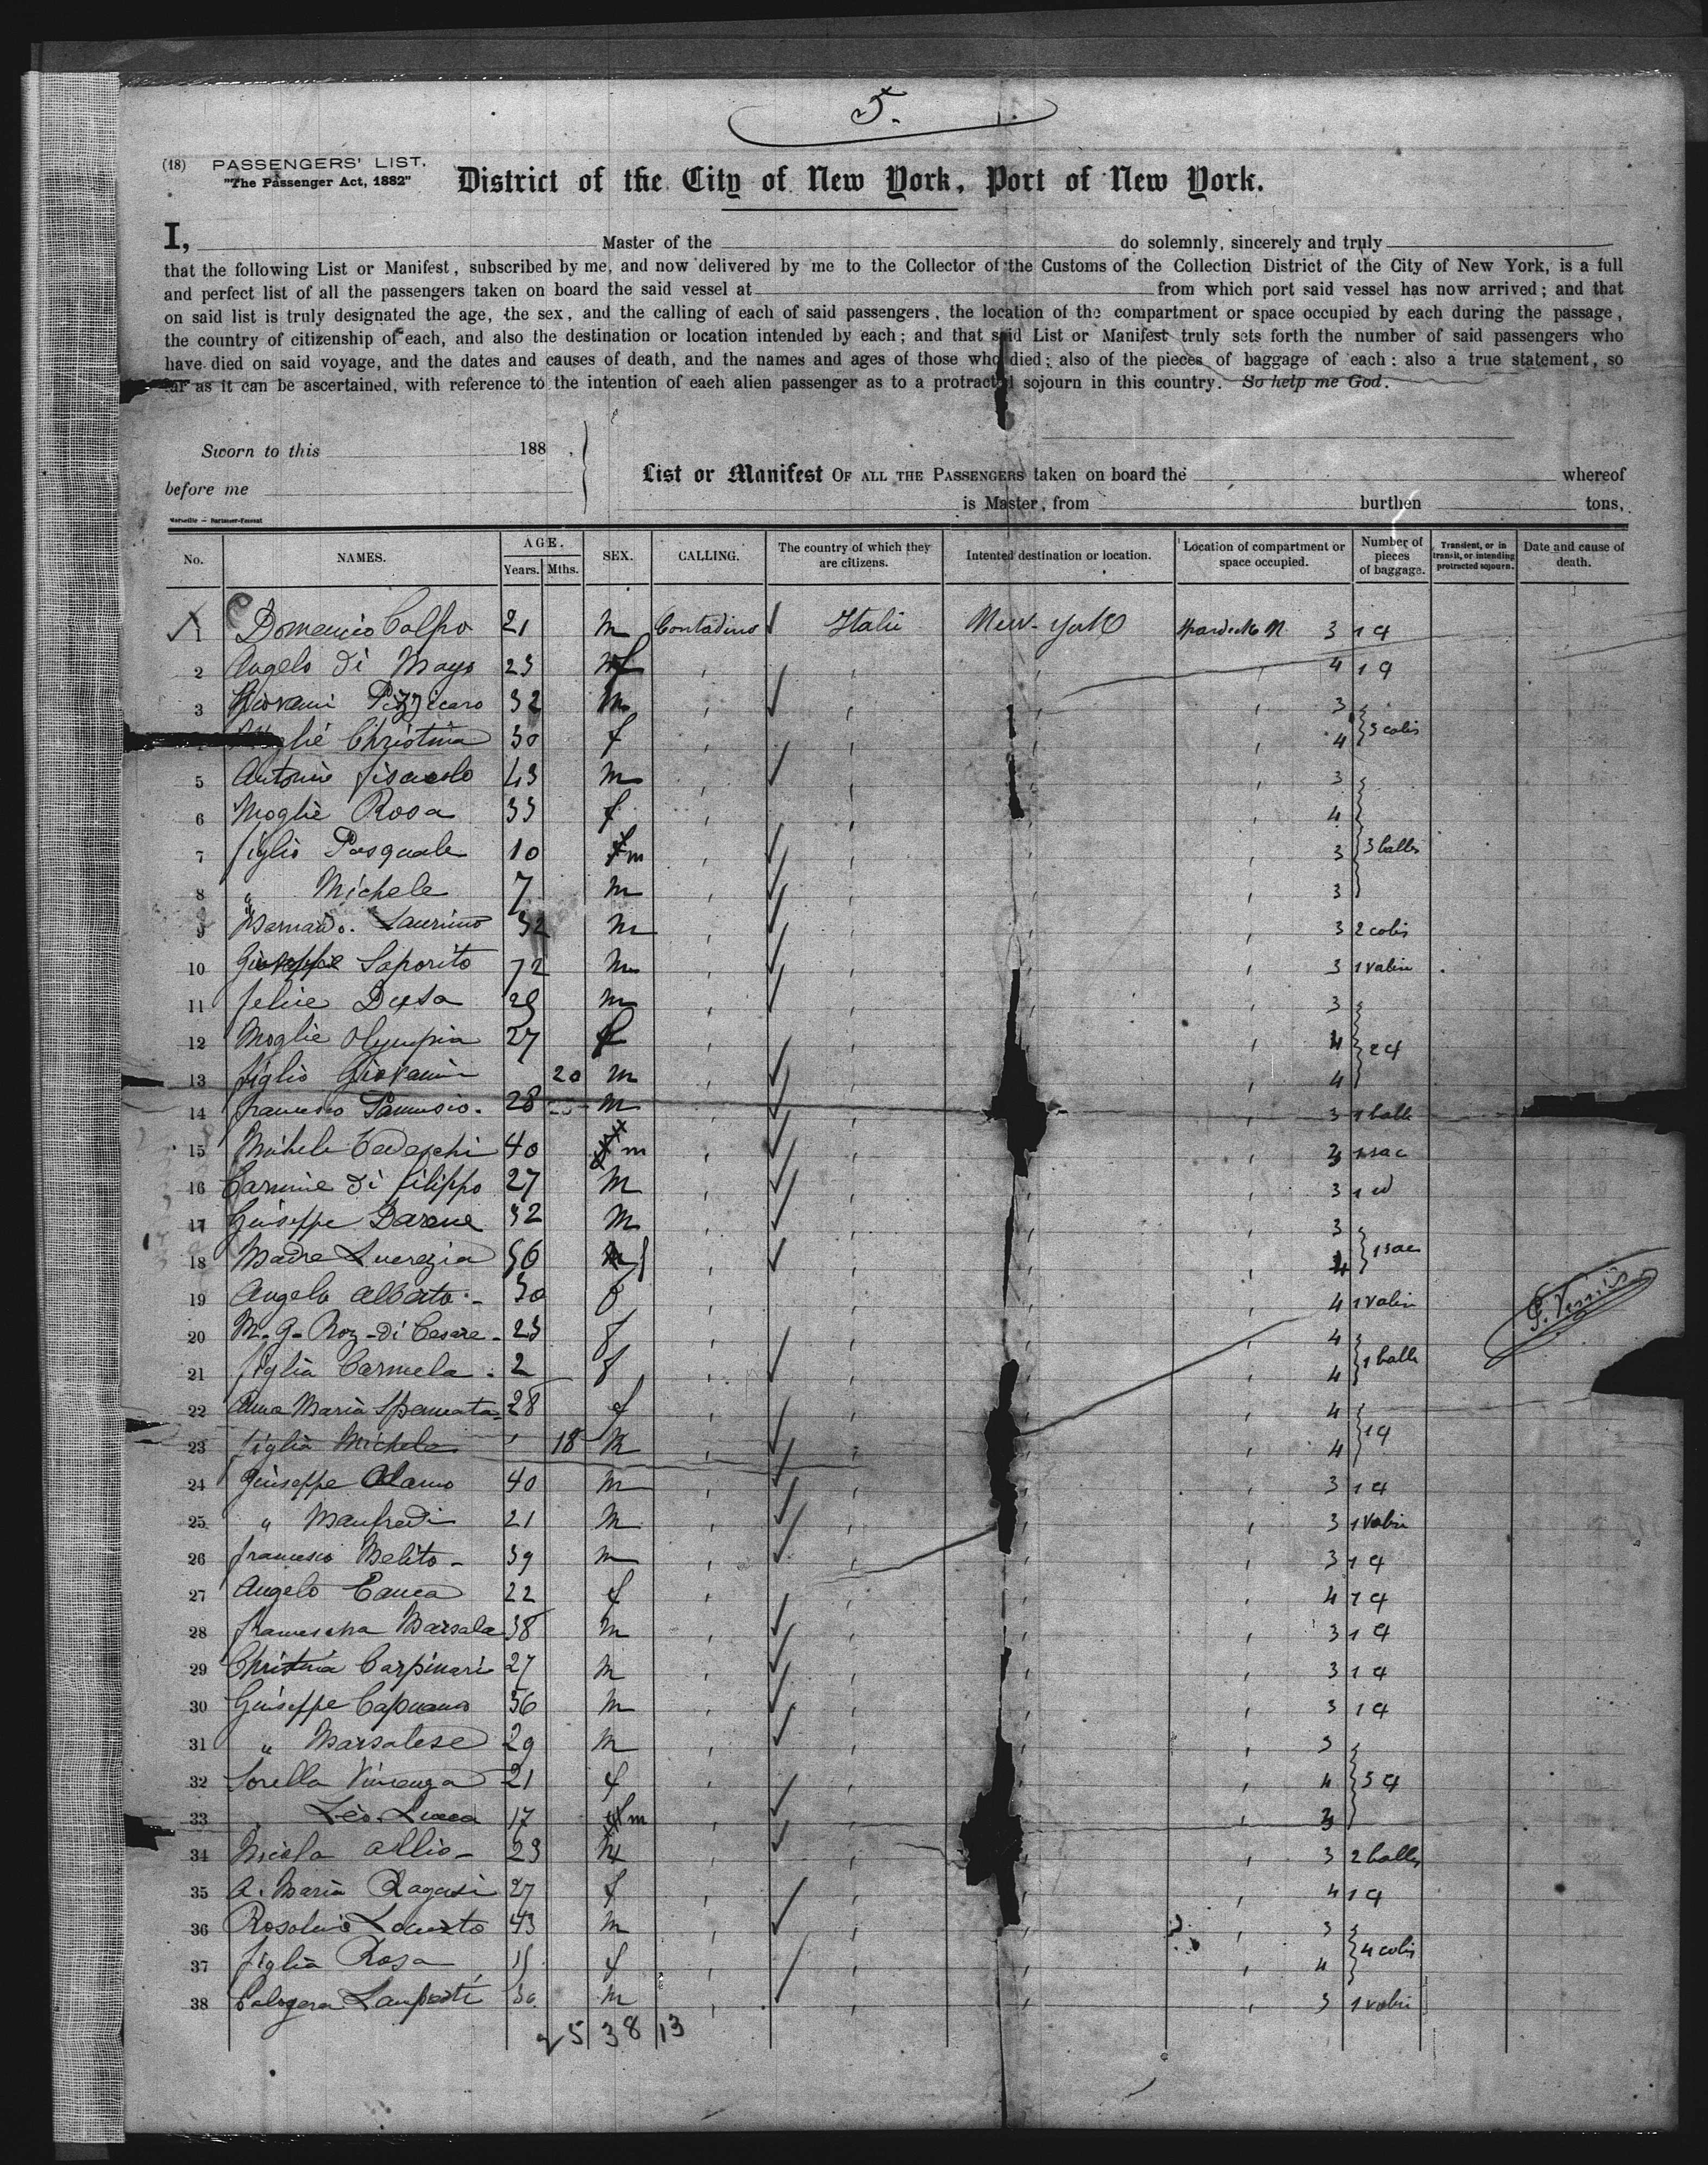 5.
(18) PASSENGERS' LIST.
"The Passenger Act, 1882"
District of the City of New York, Port of New York.
I, Master of the do solemnly, sincerely and truly
that the following List or Manifest, subscribed by me, and now delivered by me to the Collector of the Customs of the Collection District of the City of New York, is a full
and perfect list of all the passengers taken on board the said vessel at from which port said vessel has now arrived; and that
on said list is truly designated the age, the sex, and the calling of each of said passengers, the location of the compartment or space occupied by each during the passage,
the country of citizenship of each, and also the destination or location intended by each; and that said List or Manifest truly sets forth the number of said passengers who
have died on said voyage, and the dates and causes of death, and the names and ages of those who died; also of the pieces of baggage of each: also a true statement, so
far as it can be ascertained, with reference to the intention of each alien passenger as to a protracted sojourn in this country. So help me God.
Sworn to this 188 ,
before me
List or Manifest OF ALL THE PASSENGERS taken on board the whereof
is Master, from burthen tons,
No. NAMES. AGE. Years. Mths. SEX. CALLING. The country of which they are citizens. Intented destination or location. Location of compartment or space occupied. Number of pieces of baggage. Transient, or in transit, or intending protracted sojourn. Date and cause of death.
1 Domenico Colpo 21 m Contadino Italie New-York 3 1 q
2 Angelo Di Mayo 23 f 4 1 q
3 Giovani Pizzicaro 32 m 3
Moglié Christina 30 f 4 3 colis
5 Antonio 43 m 3
6 Moglie Rosa 33 f 4
7 figlio Pasquale 10 m 3 3 balles
8 " Michele 7 m 3
9 Bernardo. Laurino 32 m 3 2 colis
10 Giuseppe Saporito 72 m 3 1 valise
11 felice 29 m 3
12 Moglie Olympia 27 f 4 2 q
13 figlio Giovanni 20 m 4
14 francesco 28 m 3 1 balle
15 Michele Tedeschi 40 m 3 1 sac
16 Carmine di filippo 27 m 3 1 id
17 Giuseppe Darene 32 m 3
18 Madre Lucrezia 56 f 4 1 sac
19 Angela Alberto - 30 f 4 1 valise
20 M-g- Roz-di Cesare - 23 f 4
21 figlia Carmela - 2 f 4 1 balle
22 Anna Maria Spamata 28 f 4
23 figlia Michela 18 m 4 1 q
24 Giuseppe Adamo 40 m 3 1 q
25 " Manfredi 21 m 3 1 valise
26 francesco Melito - 39 m 3 1 q
27 Angelo Cauca 22 f 4 1 q
28 Marsala 38 m 3 1 q
29 Christina Carpinari 27 m 3 1 q
30 Giuseppe Capuano 36 m 3 1 q
31 " Marsalese 29 m 3
32 Sorella Vincenza 21 f 4 3 q
33 Leo. Lucca 17 m 3
34 Nicola Allio - 23 m 3 2 balles
35 A. Maria Ragusi 27 f 4 1 q
36 Rosolino 43 m 3
37 figlia Rosa 15 f 4 4 colis
38 Calogera 30 m 3 1 valise
25 38 13